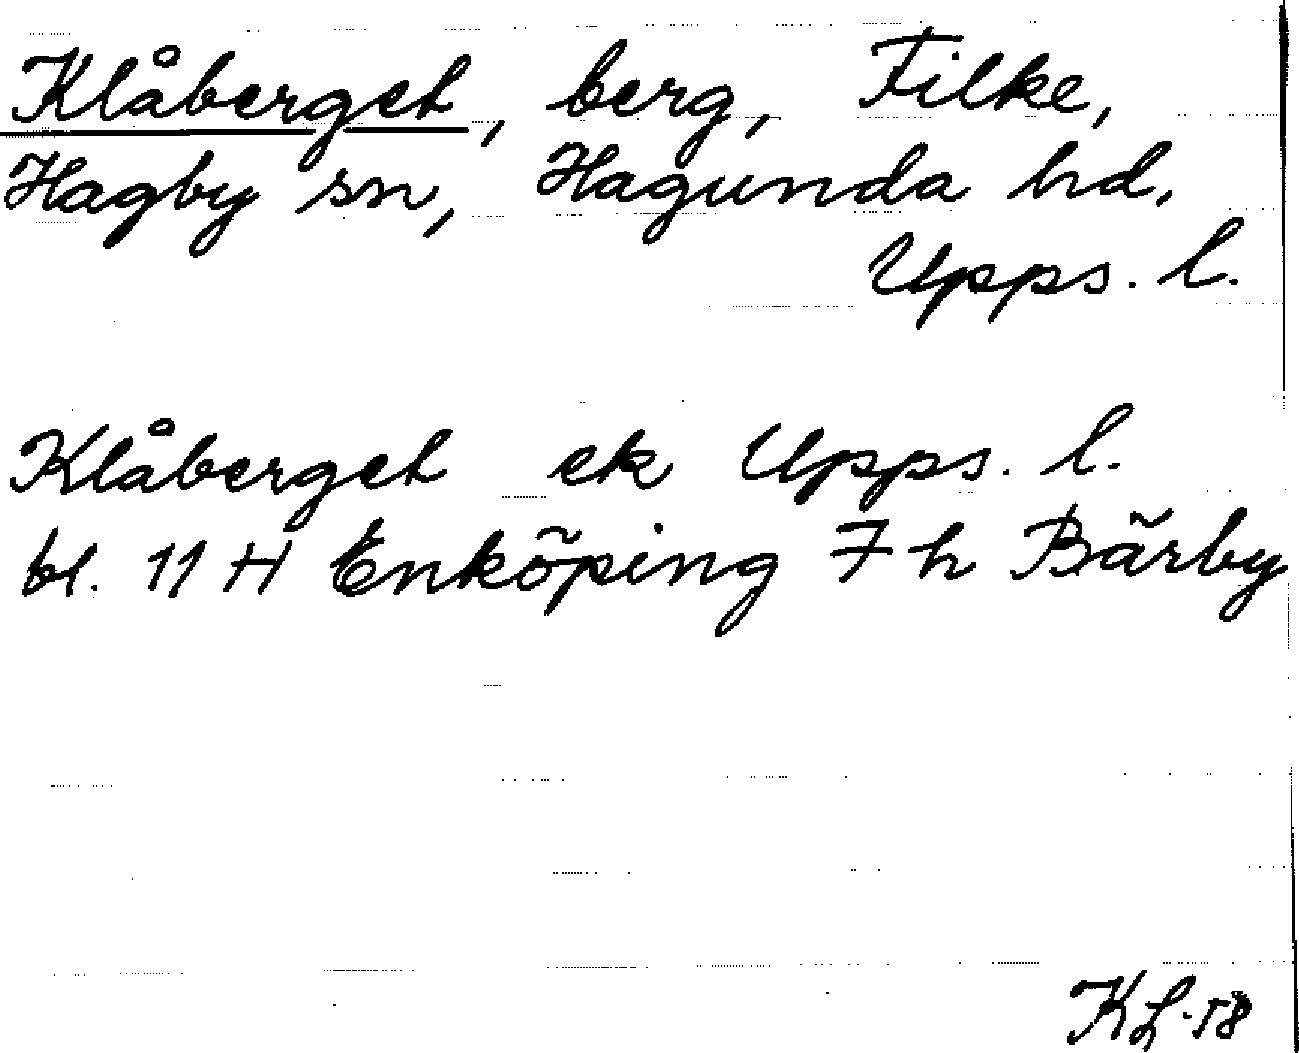 Klåberget, berg, Filke,
Hagby sn, Hagunda hd,
Upps. l.
Klåberget ek Upps. l.
bl. 11 H Enköping 7 h Bärby
KL-58